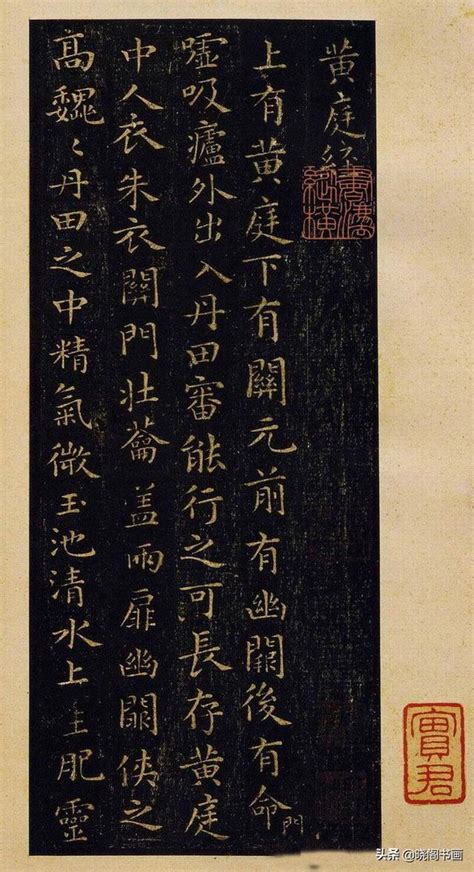 黄庭經
上有黄庭下有關元前有幽闕後有命門
嘘吸廬外出入丹田審能行之可長存黄庭
中人衣朱衣關門壯蘥盖兩扉幽闕侠之
高巍〻丹田之中精氣微玉池清水上生肥靈
寶君
头条 @晓阁书画